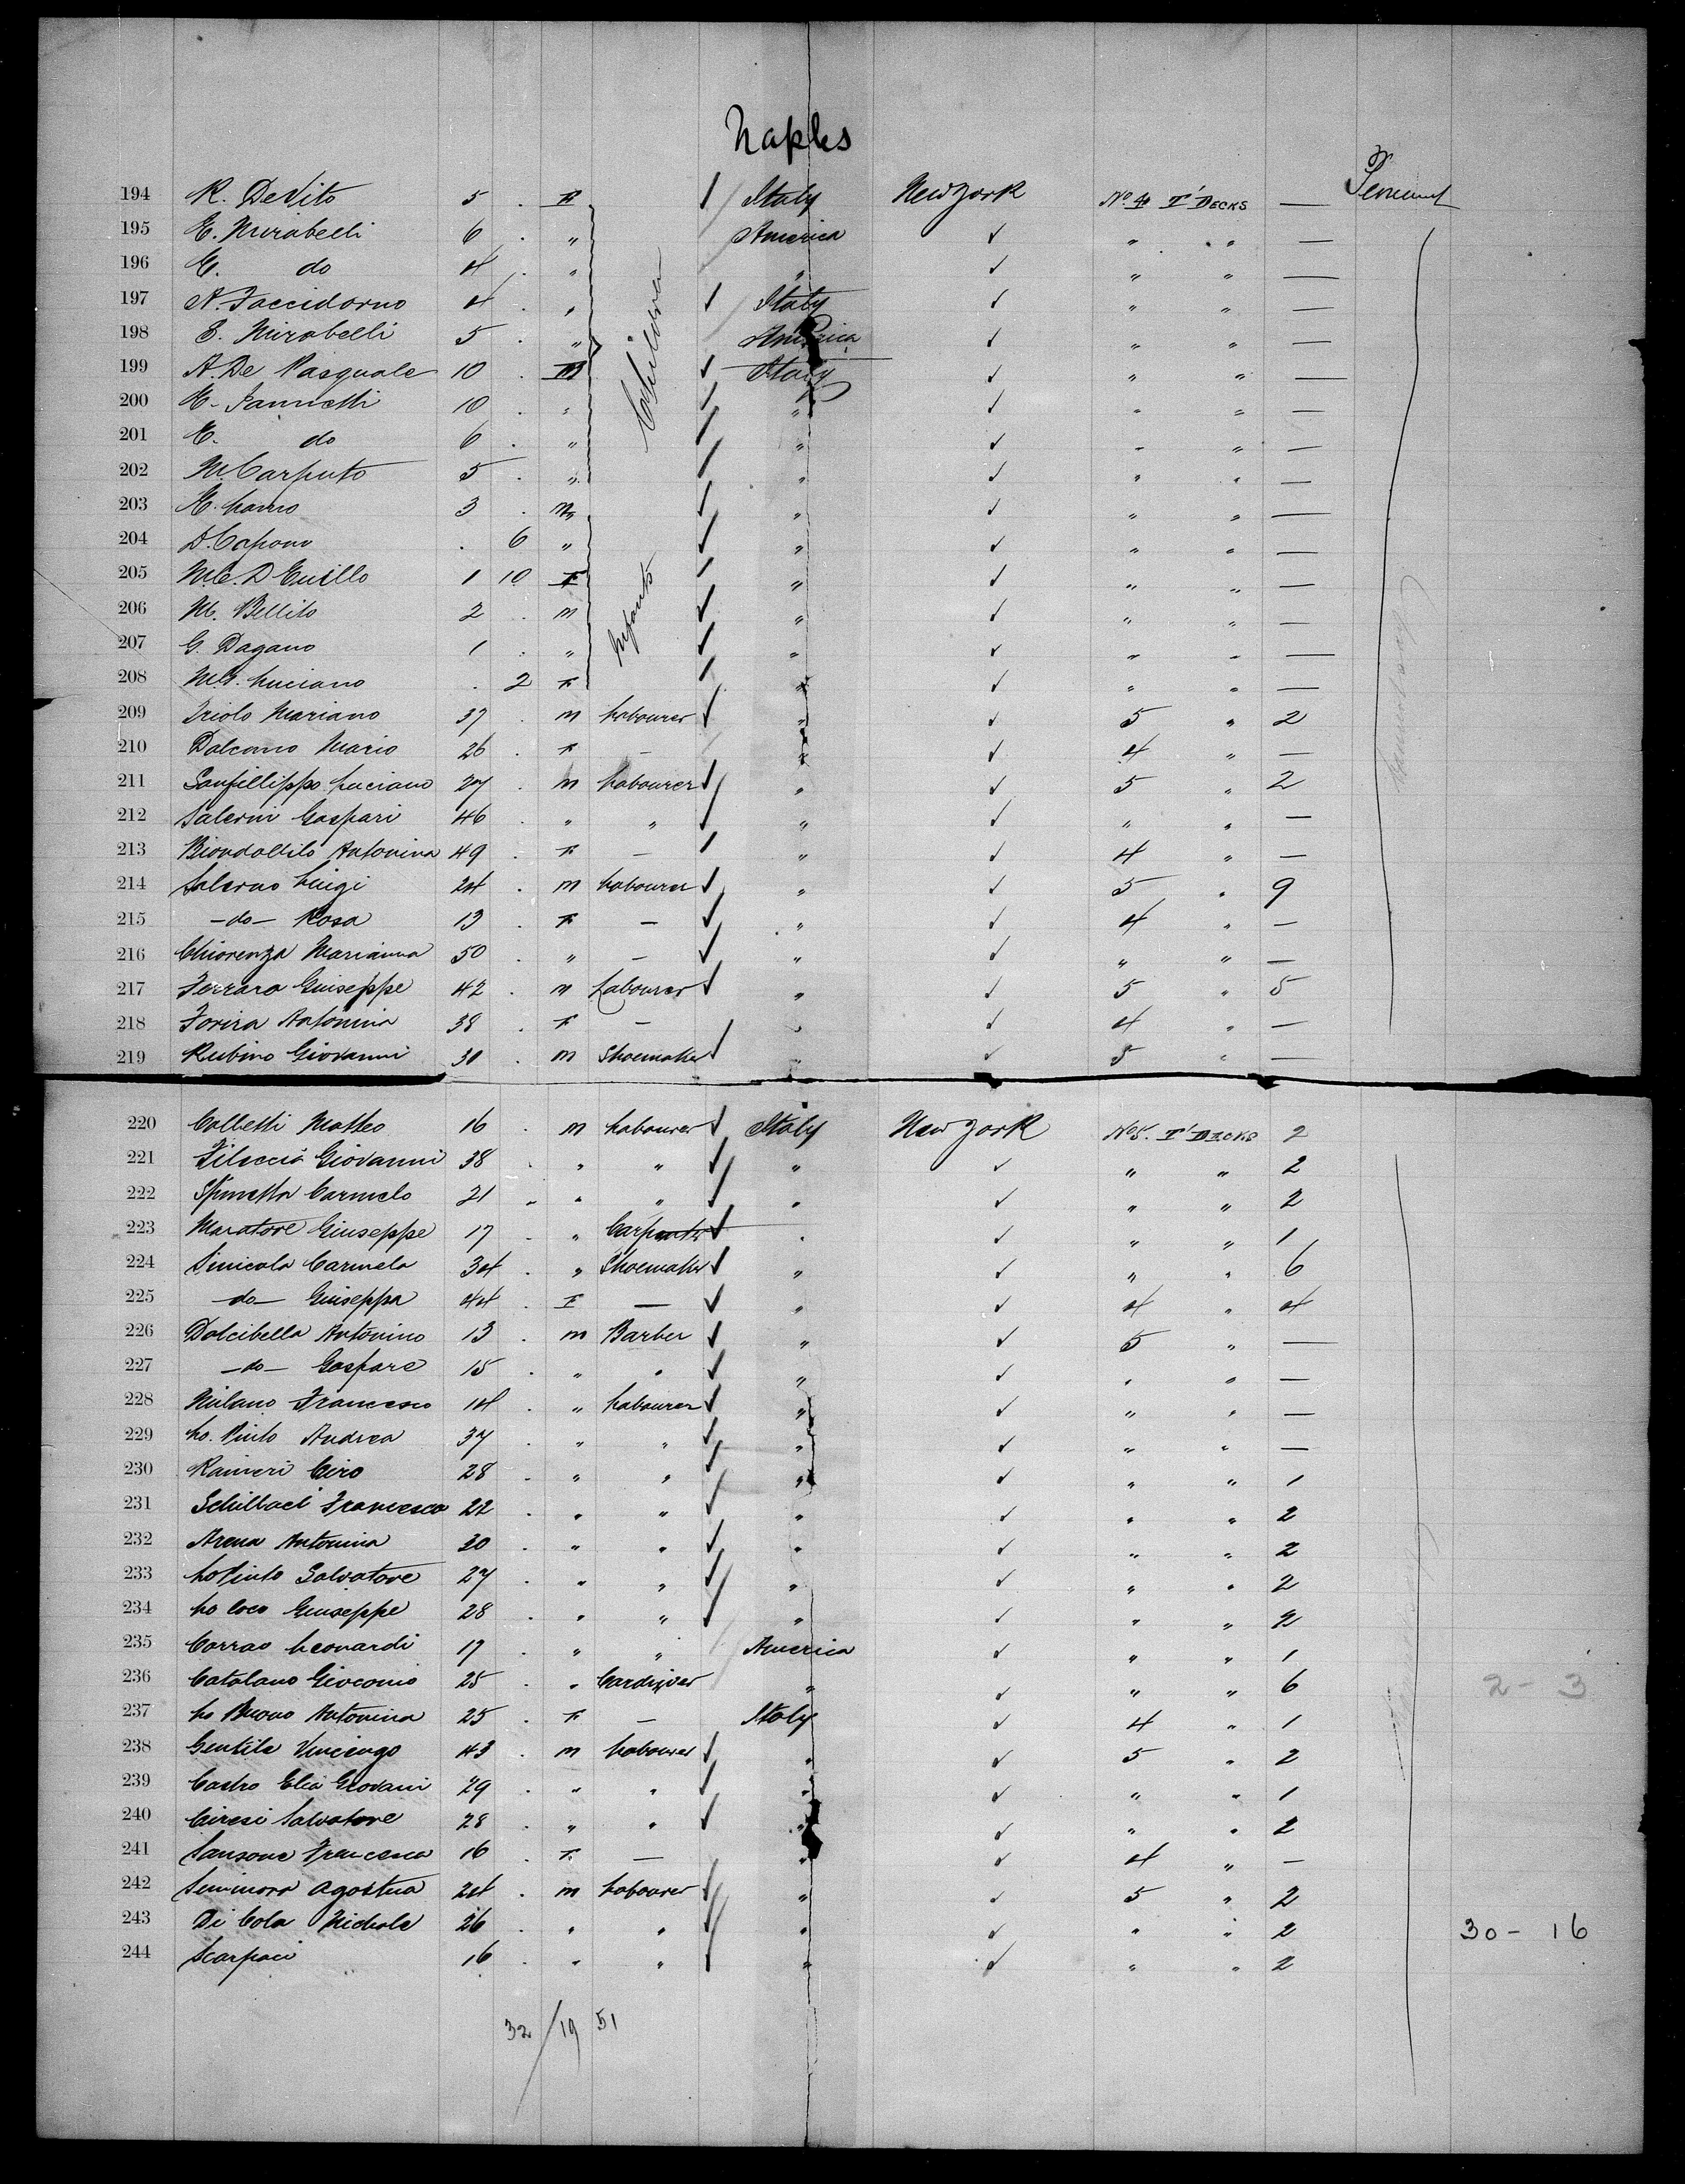 Naples
194 R. DeVito 5 . F Italy New York No. 4 T' DECKS —
195 E. Mirabelli 6 . " America ✓ " " —
196 E. do 4 . " " ✓ " " —
197 N. Faccidorno 4 . " Italy ✓ " " —
198 E. Mirabelli 5 . " Children America ✓ " " —
199 A. De Pasquale 10 . M Italy ✓ " " —
200 E. Iannetti 10 . " " ✓ " " —
201 E. do 6 . " " ✓ " " —
202 M. Carputo 5 . " " ✓ " " —
203 3 . m " ✓ " " —
204 D. Capono . 6 " " ✓ " " —
205 1 10 F " ✓ " " —
206 M. Bellito 2 . m Infants " ✓ " " —
207 G. Dagano 1 . " " ✓ " " —
208 Luciano . 2 F " ✓ " " —
209 Triolo Mariano 37 . m Labourer " ✓ 5 " 2
210 Dalcomo Maria 26 . F — " ✓ 4 " —
211 Sanfillippo Luciano 27 . m Labourer " ✓ 5 " 2
212 Salerni Gaspari 46 . " " " ✓ " " —
213 Biondolillo Antonina 49 . F — " ✓ 4 " —
214 Salerno Luigi 24 . m Labourer " ✓ 5 " 9
215 -do- Rosa 13 . F — " ✓ 4 " —
216 Chiorenza Marianna 50 . " — " ✓ " " —
217 Ferrara Giuseppe 42 . m Labourer " ✓ 5 " 5
218 Antonina 38 . F — " ✓ 4 " —
219 Rubino Giovanni 30 . m Shoemaker " ✓ 5 " —
220 Colletti Matteo 16 . m Labourer Italy New York No 5. T' DECKS 2
221 Filaccia Giovanni 38 . " " " ✓ " " 2
222 Spinetta Carmelo 21 . " " " ✓ " " 2
223 Maratore Giuseppe 17 . " Carpenter " ✓ " " 1
224 Sinicola Carmelo 34 . " Shoemaker " ✓ " " 6
225 -do- Giuseppa 44 . F — " ✓ 4 " 4
226 Dolcibella Antonino 13 . m Barber " ✓ 5 " —
227 -do- Gaspare 15 . " " " ✓ " " —
228 Milano Francesco 14 . " Labourer " ✓ " " —
229 Lo Pinto Andrea 37 . " " " ✓ " " —
230 Raineri Ciro 28 . " " " ✓ " " 1
231 Schillaci Francesco 22 . " " " ✓ " " 2
232 Arena Antonina 20 . " " " ✓ " " 2
233 Lo Pinto Salvatore 27 . " " " ✓ " " 2
234 Lo Coco Giuseppe 28 . " " " ✓ " " 2
235 Corrao Leonardi 17 . " " America ✓ " " 1
236 Catalano Giocomo 25 . " Cardriver " ✓ " " 6
2 - 3
237 Lo Buono Antonina 25 . F — Italy ✓ 4 " 1
238 Gentile Vincenzo 43 . m Labourer " ✓ 5 " 2
239 Castro Elia Giovani 29 . " " " ✓ " " 1
240 Ciresi Salvatore 28 . " " " ✓ " " 2
241 Sansone Francesca 16 . F — " ✓ 4 " —
242 Agostina 24 . m Labourer " ✓ 5 " 2
243 Di Cola Michele 26 . " " " ✓ " " 2
30 - 16
244 Scarpaci 16 . " " " ✓ " " 2
32 / 19 51